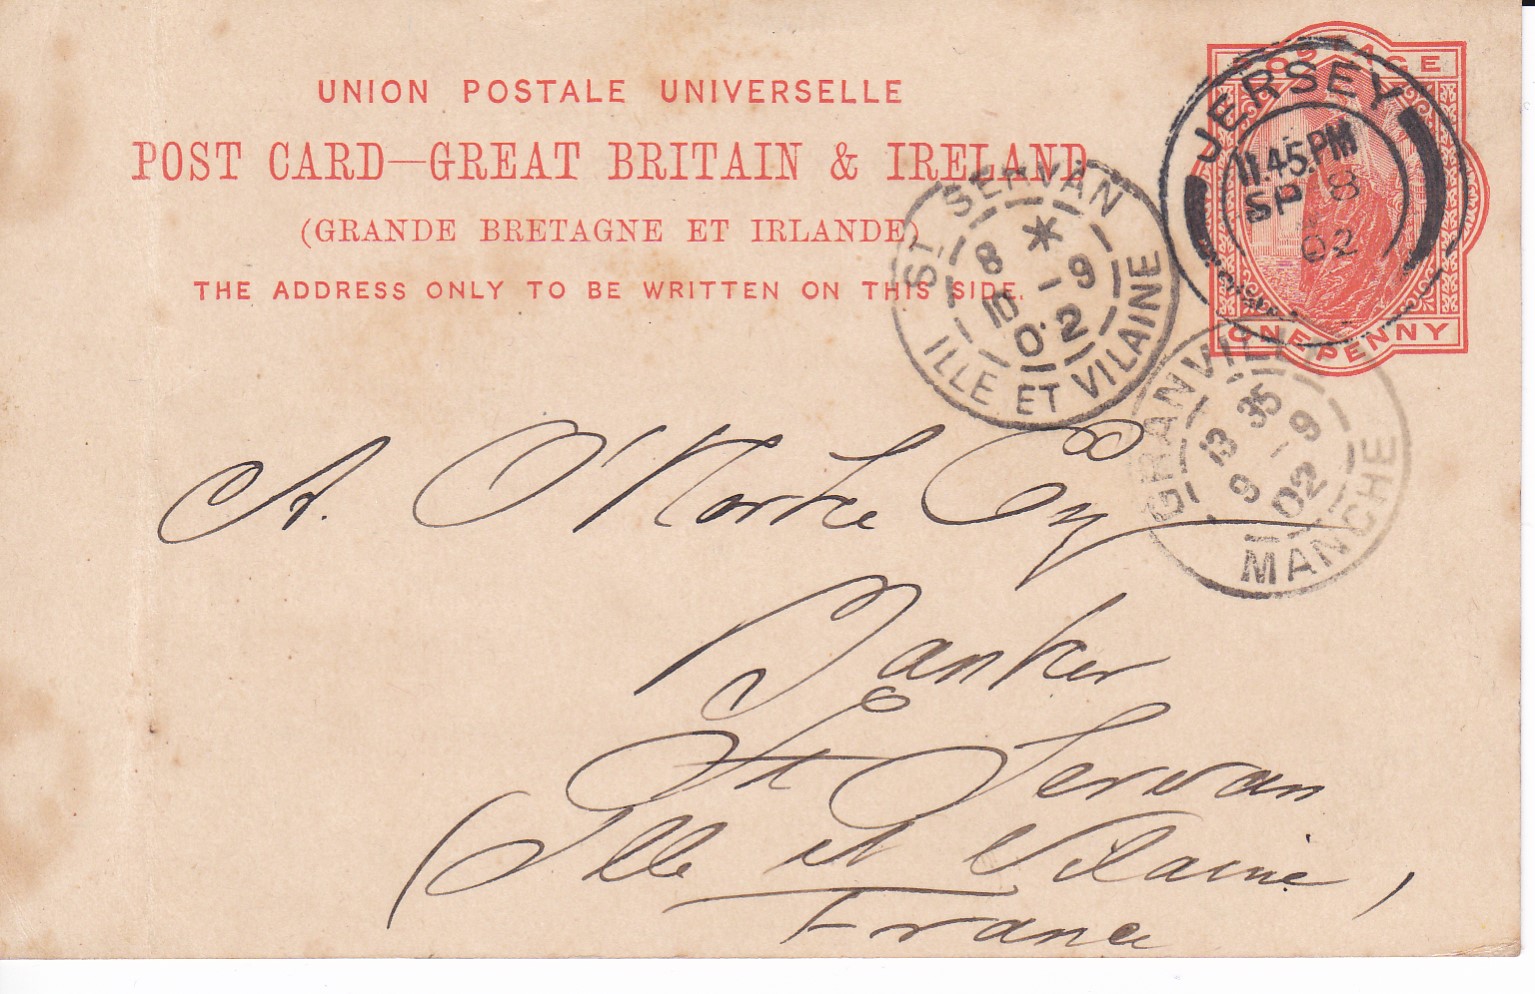 UNION POSTALE UNIVERSELLE
POST CARD—GREAT BRITAIN & IRELAND
(GRANDE BRETAGNE ET IRLANDE)
THE ADDRESS ONLY TO BE WRITTEN ON THIS SIDE.
POSTAGE
ONE PENNY
JERSEY
11.45.PM
SP 8
02
ST SERVAN
8 * - 9
10 02
ILLE ET VILAINE
GRANVILLE
13 35
9 - 9
02
MANCHE
A. O'Rorke Esq
Banker
St Servan
(Ille et Vilaine)
France